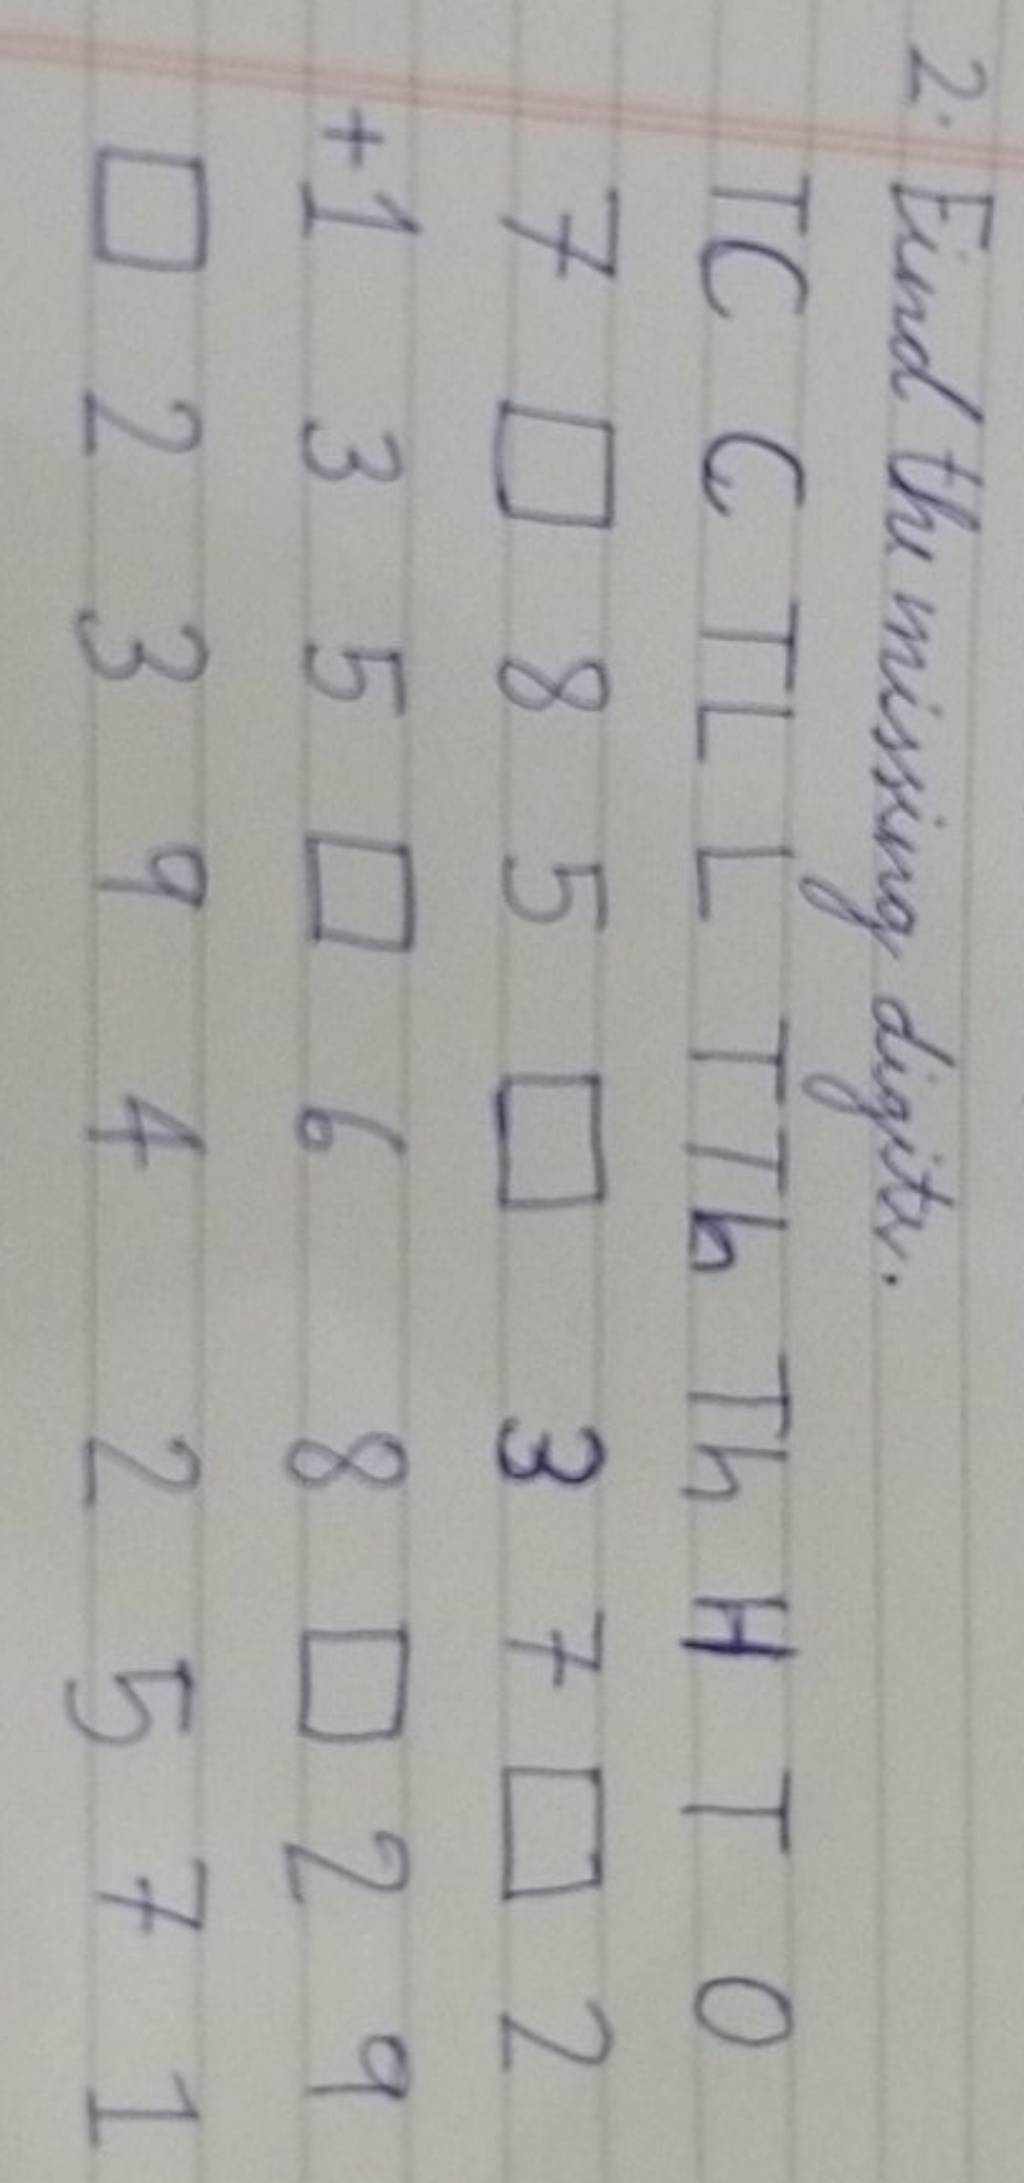 2. Find the missing digits.
TC C TL L TTh Th H T O
7 □ 8 5 □ 3 7 □ 2
+1 3 5 □ 6 8 □ 2 9
□ 2 3 9 4 2 5 7 1